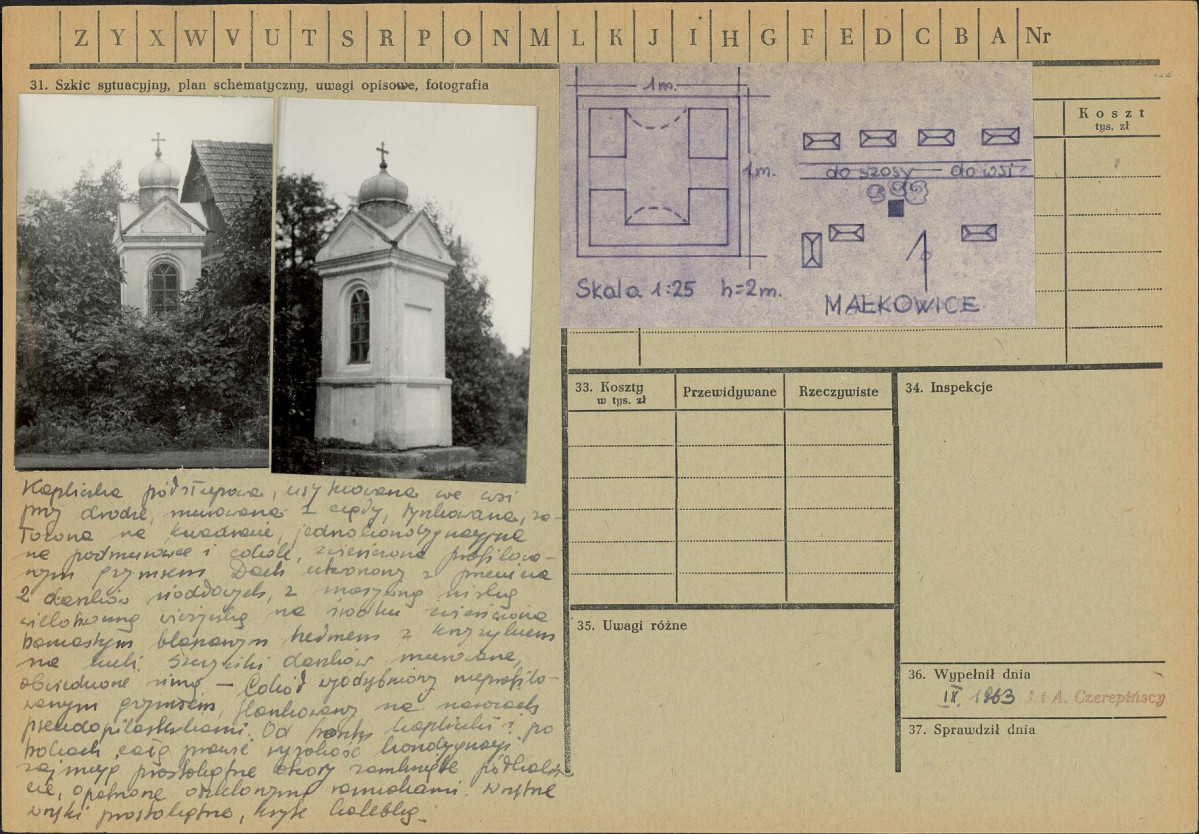 Z Y X W V U T S R P O N M L K J I H G F E D C B A Nr
31. Szkic sytuacyjny, plan schematyczny, uwagi opisowe, fotografia
Koszt
tys. zł
1m.
1m.
do szosy — do wsi
Skala 1:25 h=2m.
MAŁKOWICE
33. Koszty
w tys. zł
Przewidywane
Rzeczywiste
34. Inspekcje
35. Uwagi różne
36. Wypełnił dnia
IX. 1963 A. Czerepińscy
37. Sprawdził dnia
Kapliczka półsłupowa, usytuowana we wsi
przy drodze, murowana z cegły, tynkowana, za-
łożona na kwadracie, jednokondygnacyjna
na podmurówce i cokole, zwieńczona profilowa-
nym gzymsem. Dach utworzony z
2 daszków siodłowych, z masywną niską
wieżyczką na środku zwieńczoną
baniastym blaszanym hełmem z krzyżykiem
na kuli. Szczyciki daszków murowane,
obwiedzione simą — Cokół wyodrębniony nieprofilo-
wanym gzymsem, flankowany na narożach
pseudopilasterkami. Od frontu kapliczki i po
bokach całą prawie wysokość kondygnacji
zajmują prostokątne otwory zamknięte półkoli-
ście, opatrzone oszklonymi ramkami. Wnętrze
prostokątne, kryte kolebką.